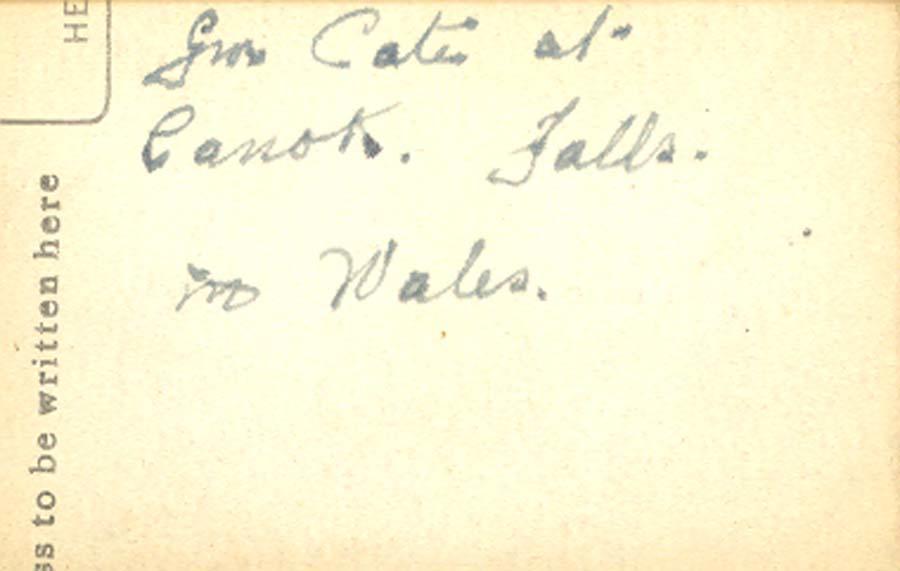 HE
Gwn Cate at
Canok. Falls.
in Wales.
ss to be written here